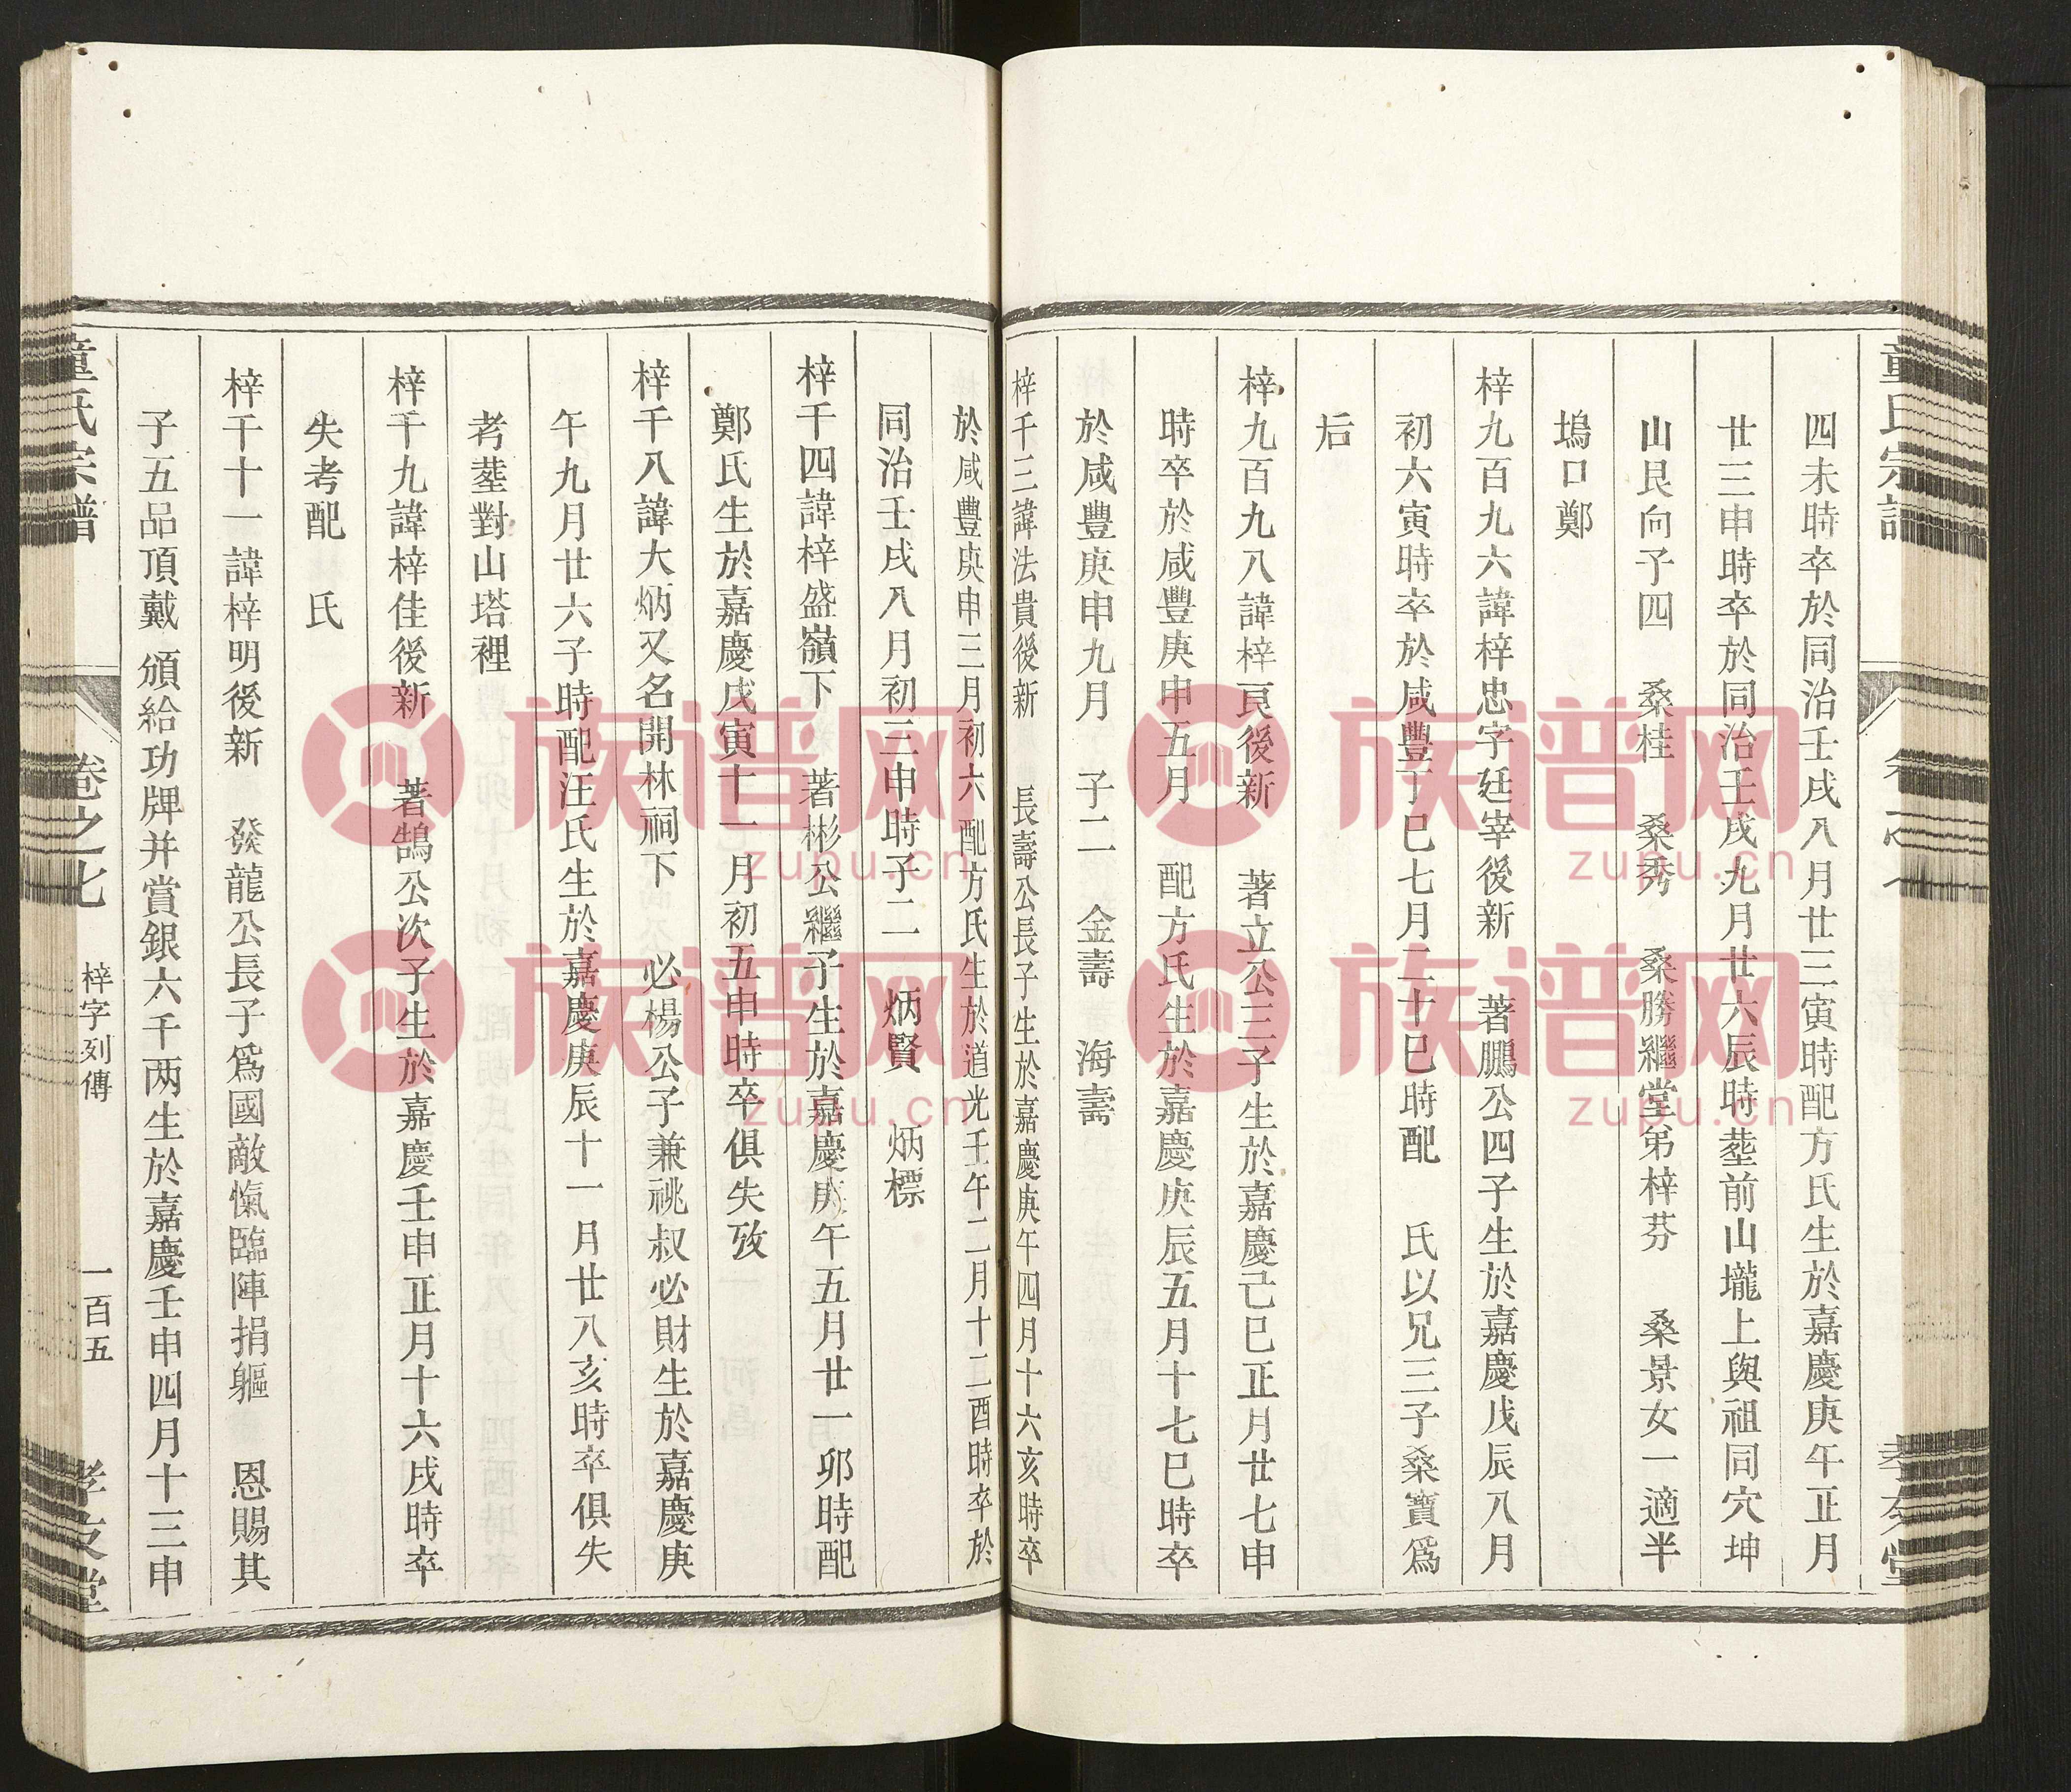 四未時卒於同治壬戌八月廿三寅時配方氏生於嘉慶庚午正月
廿三申時卒於同治壬戌九月廿六辰時塟前山壠上與祖同穴坤
山艮向子四 桑桂 桑秀 桑勝繼堂弟梓芬 桑景女一適半
塢口鄭
梓九百九六諱梓忠字廷宰後新 著鵬公四子生於嘉慶戊辰八月
初六寅時卒於咸豐丁巳七月二十巳時配 氏以兄三子桑寶爲
后
梓九百九八諱梓㫐後新 著立公三子生於嘉慶己巳正月廿七申
時卒於咸豐庚申五月 配方氏生於嘉慶庚辰五月十七巳時卒
於咸豐庚申九月 子二 金壽 海壽
梓千三諱法貴後新 長壽公長子生於嘉慶庚午四月十六亥時卒
於咸豐庚申三月初六配方氏生於道光壬午二月十二酉時卒於
同治壬戌八月初三申時子二 炳賢 炳標
梓千四諱梓盛嶺下 著彬公繼子生於嘉慶庚午五月廿一卯時配
鄭氏生於嘉慶戊寅十一月初五申時卒俱失攷
梓千八諱大炳又名開林祠下 必楊公子兼祧叔必財生於嘉慶庚
午九月廿六子時配汪氏生於嘉慶庚辰十一月廿八亥時卒俱失
考塟對山塔裡
梓千九諱梓佳後新 著鵠公次子生於嘉慶壬申正月十六戌時卒
失考配 氏
梓千十一諱梓明後新 發龍公長子爲國敵愾臨陣捐軀 恩賜其
子五品頂戴 頒給功牌并賞銀六千两生於嘉慶壬申四月十三申
童氏宗譜 卷之七 梓字列傳 一百五 孝友堂
族谱网
zupu.cn
族谱网
zupu.cn
族谱网
zupu.cn
族谱网
zupu.cn